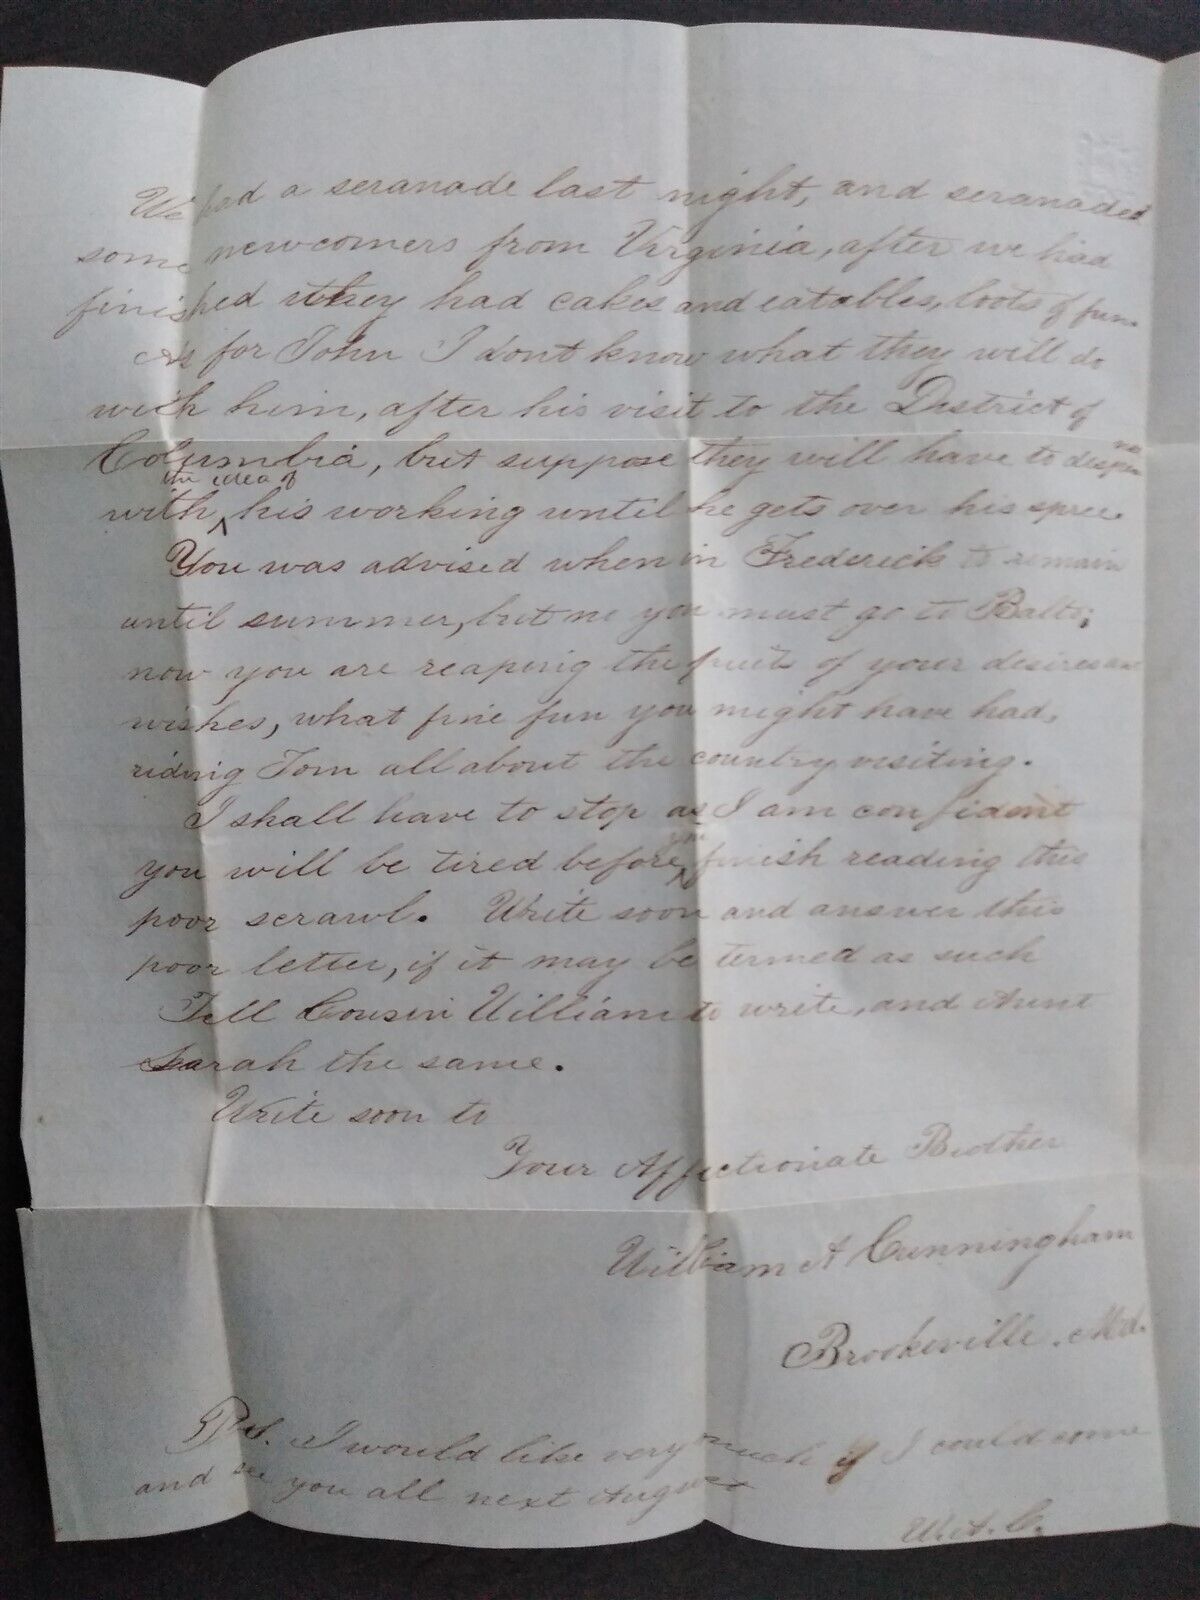 We had a seranade last night, and seranaded
some newcomers from Virginia, after we had
finished they had cakes and eatables, loots of fun.
As for John I dont know what they will do
with him, after his visit to the District of
Columbia, but suppose they will have to
with the idea of his working until he gets over his spree.
You was advised when in Frederick to remain
until summer, but no you must go to Balto;
now you are reaping the fruits of your desires and
wishes, what fine fun you might have had,
riding Tom all about the country visiting.
I shall have to stop as I am confident
you will be tired before you finish reading this
poor scrawl. Write soon and answer this
poor letter, if it may be termed as such
Tell Cousin William to write, and Aunt
Sarah the same.
Write soon to
Your Affectionate Brother
William A Cunningham
Brookeville. Md.
P.S. I would like very much if I could come
and see you all next August
W.A.C.